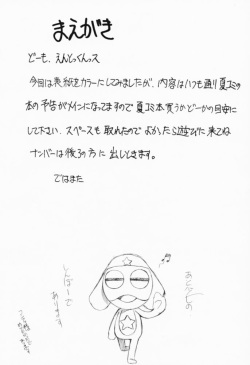 まえがき
どーも、えんどっくんっス
今回は表紙をカラーにしてみましたが、内容はいつも通り夏コミの
本の予告がメインになってますので夏コミ本買うかどーかの目安に
して下さい。スペースも取れたのでよかったら遊びに来てね
ナンバーは後ろの方に出しときます。
ではまた
あと少しの
しんぼーで
あります